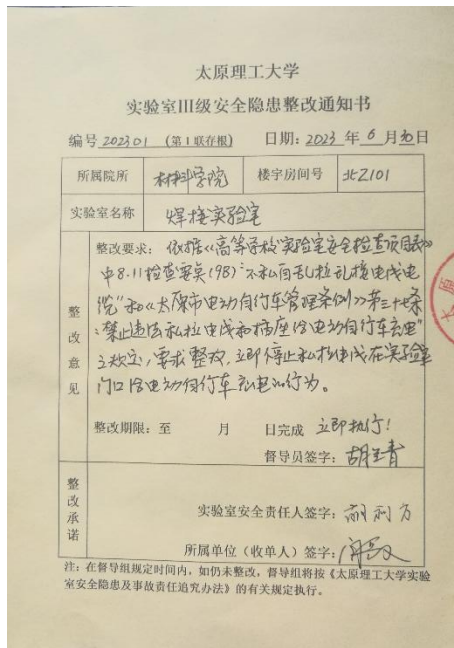 太原理工大学
实验室III级安全隐患整改通知书
编号 202301 (第1联存根) 日期: 2023 年 6 月 30 日
所属院所 材料学院 楼宇房间号 北Z101
实验室名称 焊接实验室
整改意见
整改要求: 依据《高等学校实验室安全检查项目表》
中8.11检查要点(98)“不私自乱拉乱接电线电
缆”和《太原市电动自行车管理条例》第三十七条
:“禁止违法私拉电线和插座给电动自行车充电”
之规定,要求整改,立即停止私拉电线在实验室
门口给电动自行车充电的行为。
整改期限: 至 月 日完成 立即执行!
督导员签字:
整改承诺
实验室安全责任人签字:
所属单位(收单人)签字:
注: 在督导组规定时间内,如仍未整改,督导组将按《太原理工大学实验
室安全隐患及事故责任追究办法》的有关规定执行。
太原